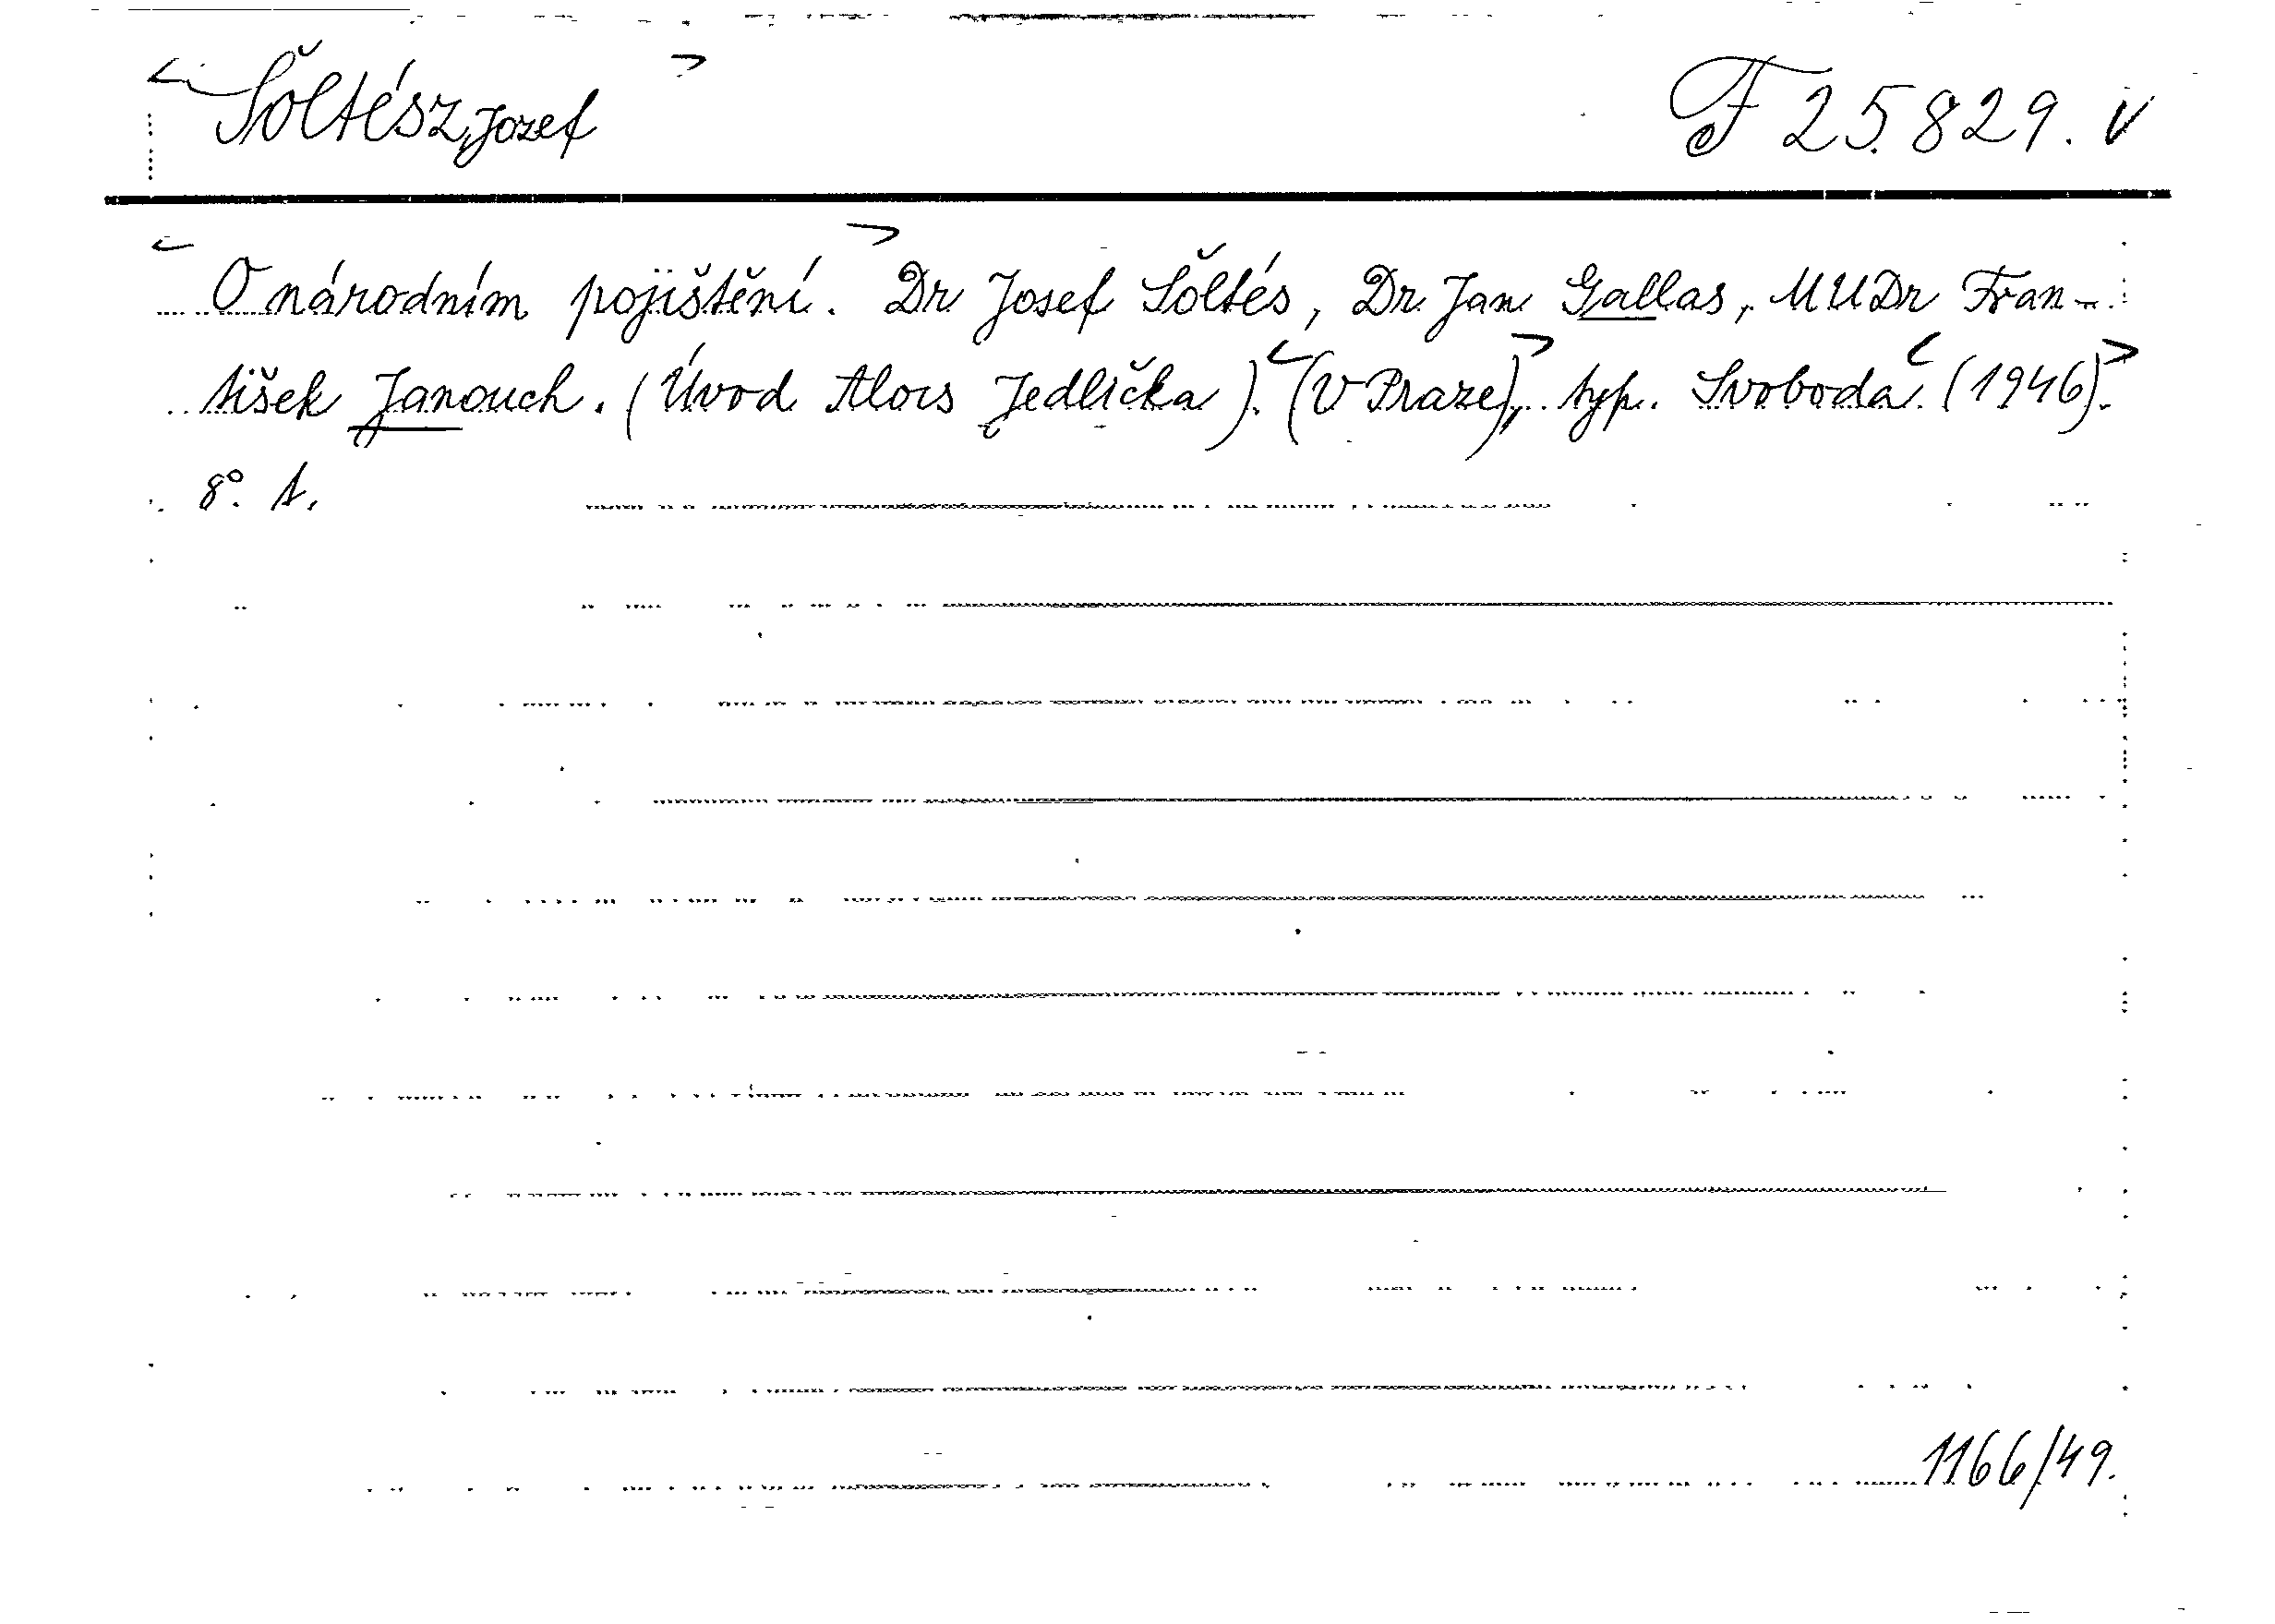 Šoltész, Jozef
F 25.829. V
O národním pojištění. Dr Josef Šoltés, Dr. Jan Gallas, MUDr Fran-
tišek Janouch. (Úvod Alois Jedlička). (V Praze), typ. Svoboda (1946).
8°.
1166/49.